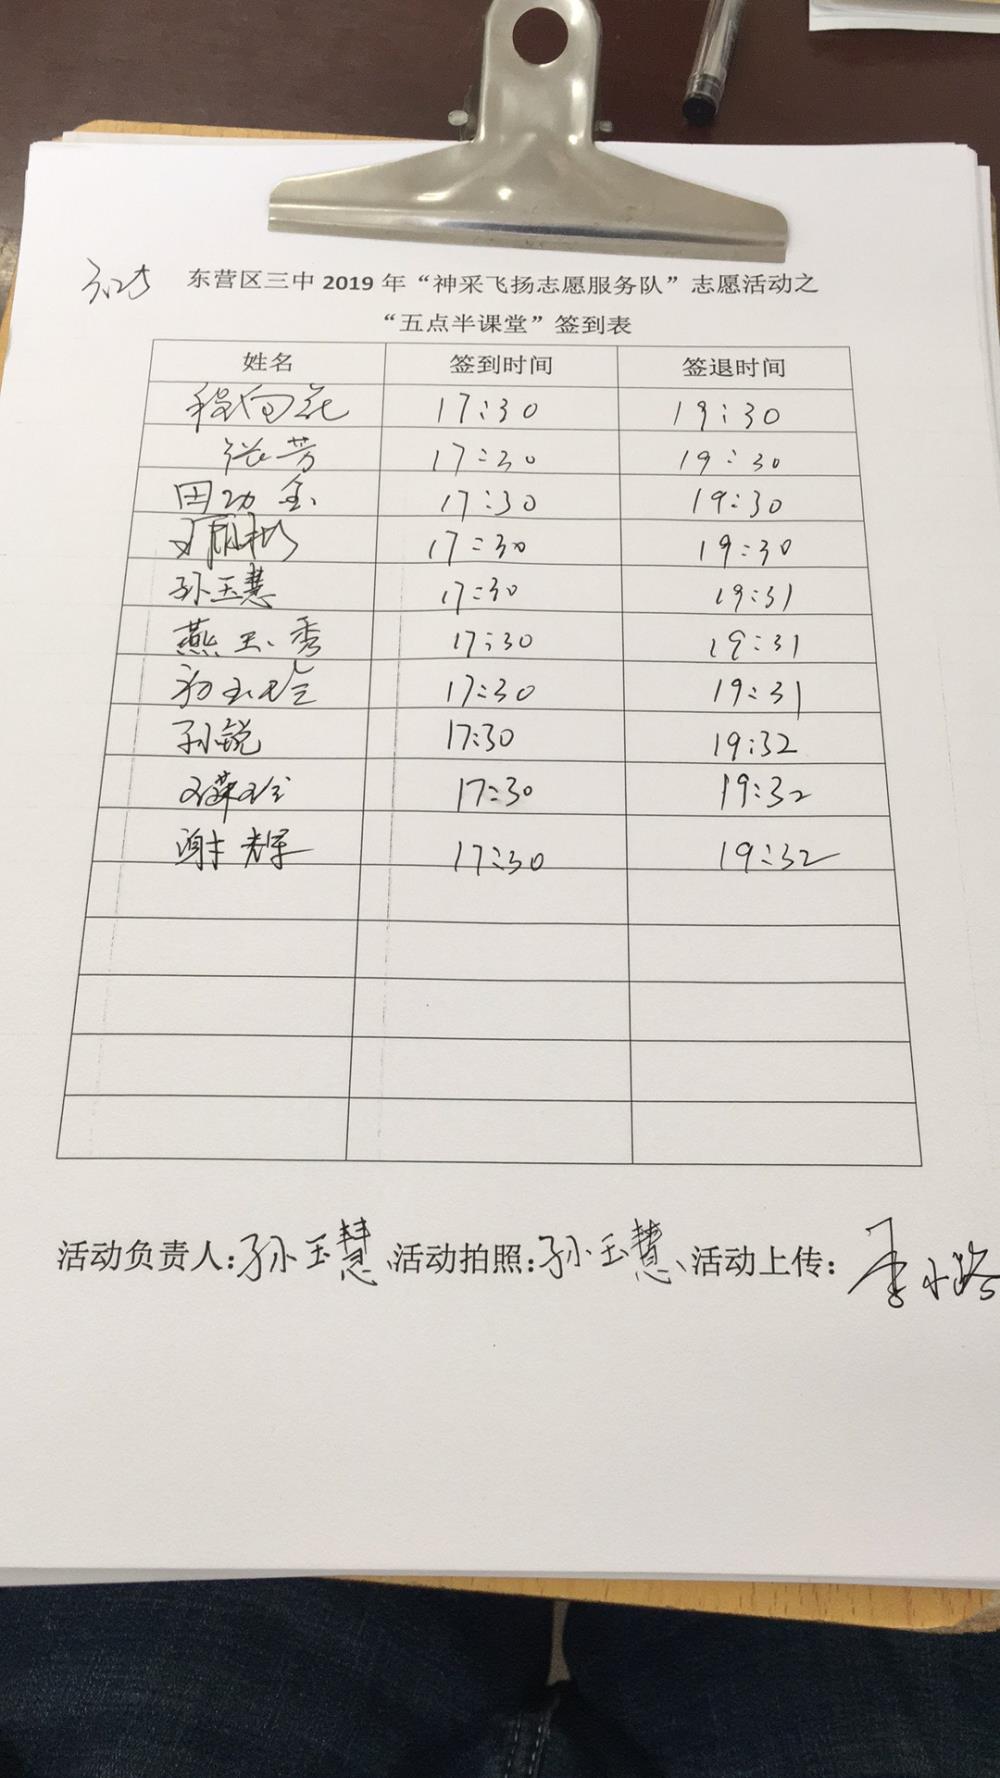 3.25 东营区三中2019年“神采飞扬志愿服务队”志愿活动之
“五点半课堂”签到表
姓名 签到时间 签退时间
程向花 17:30 19:30
张芳 17:30 19:30
田功奎 17:30 19:30
17:30 19:30
孙玉慧 17:30 19:31
燕玉秀 17:30 19:31
初玉玲 17:30 19:31
孙锐 17:30 19:32
17:30 19:32
谢辉 17:30 19:32
活动负责人:孙玉慧、活动拍照:孙玉慧、活动上传: